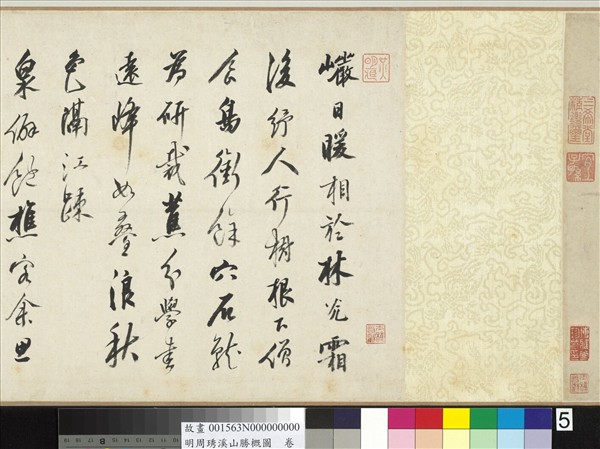 巖日暖相於林光霜
後紓人行樹根下僧
食鳥銜餘穴石就
為研裁蕉分學書
遠峰如疊浪秋
色隔江疎
泉僻樵客余思
故畫 001563N000000000
明周琇溪山勝概圖 卷
5